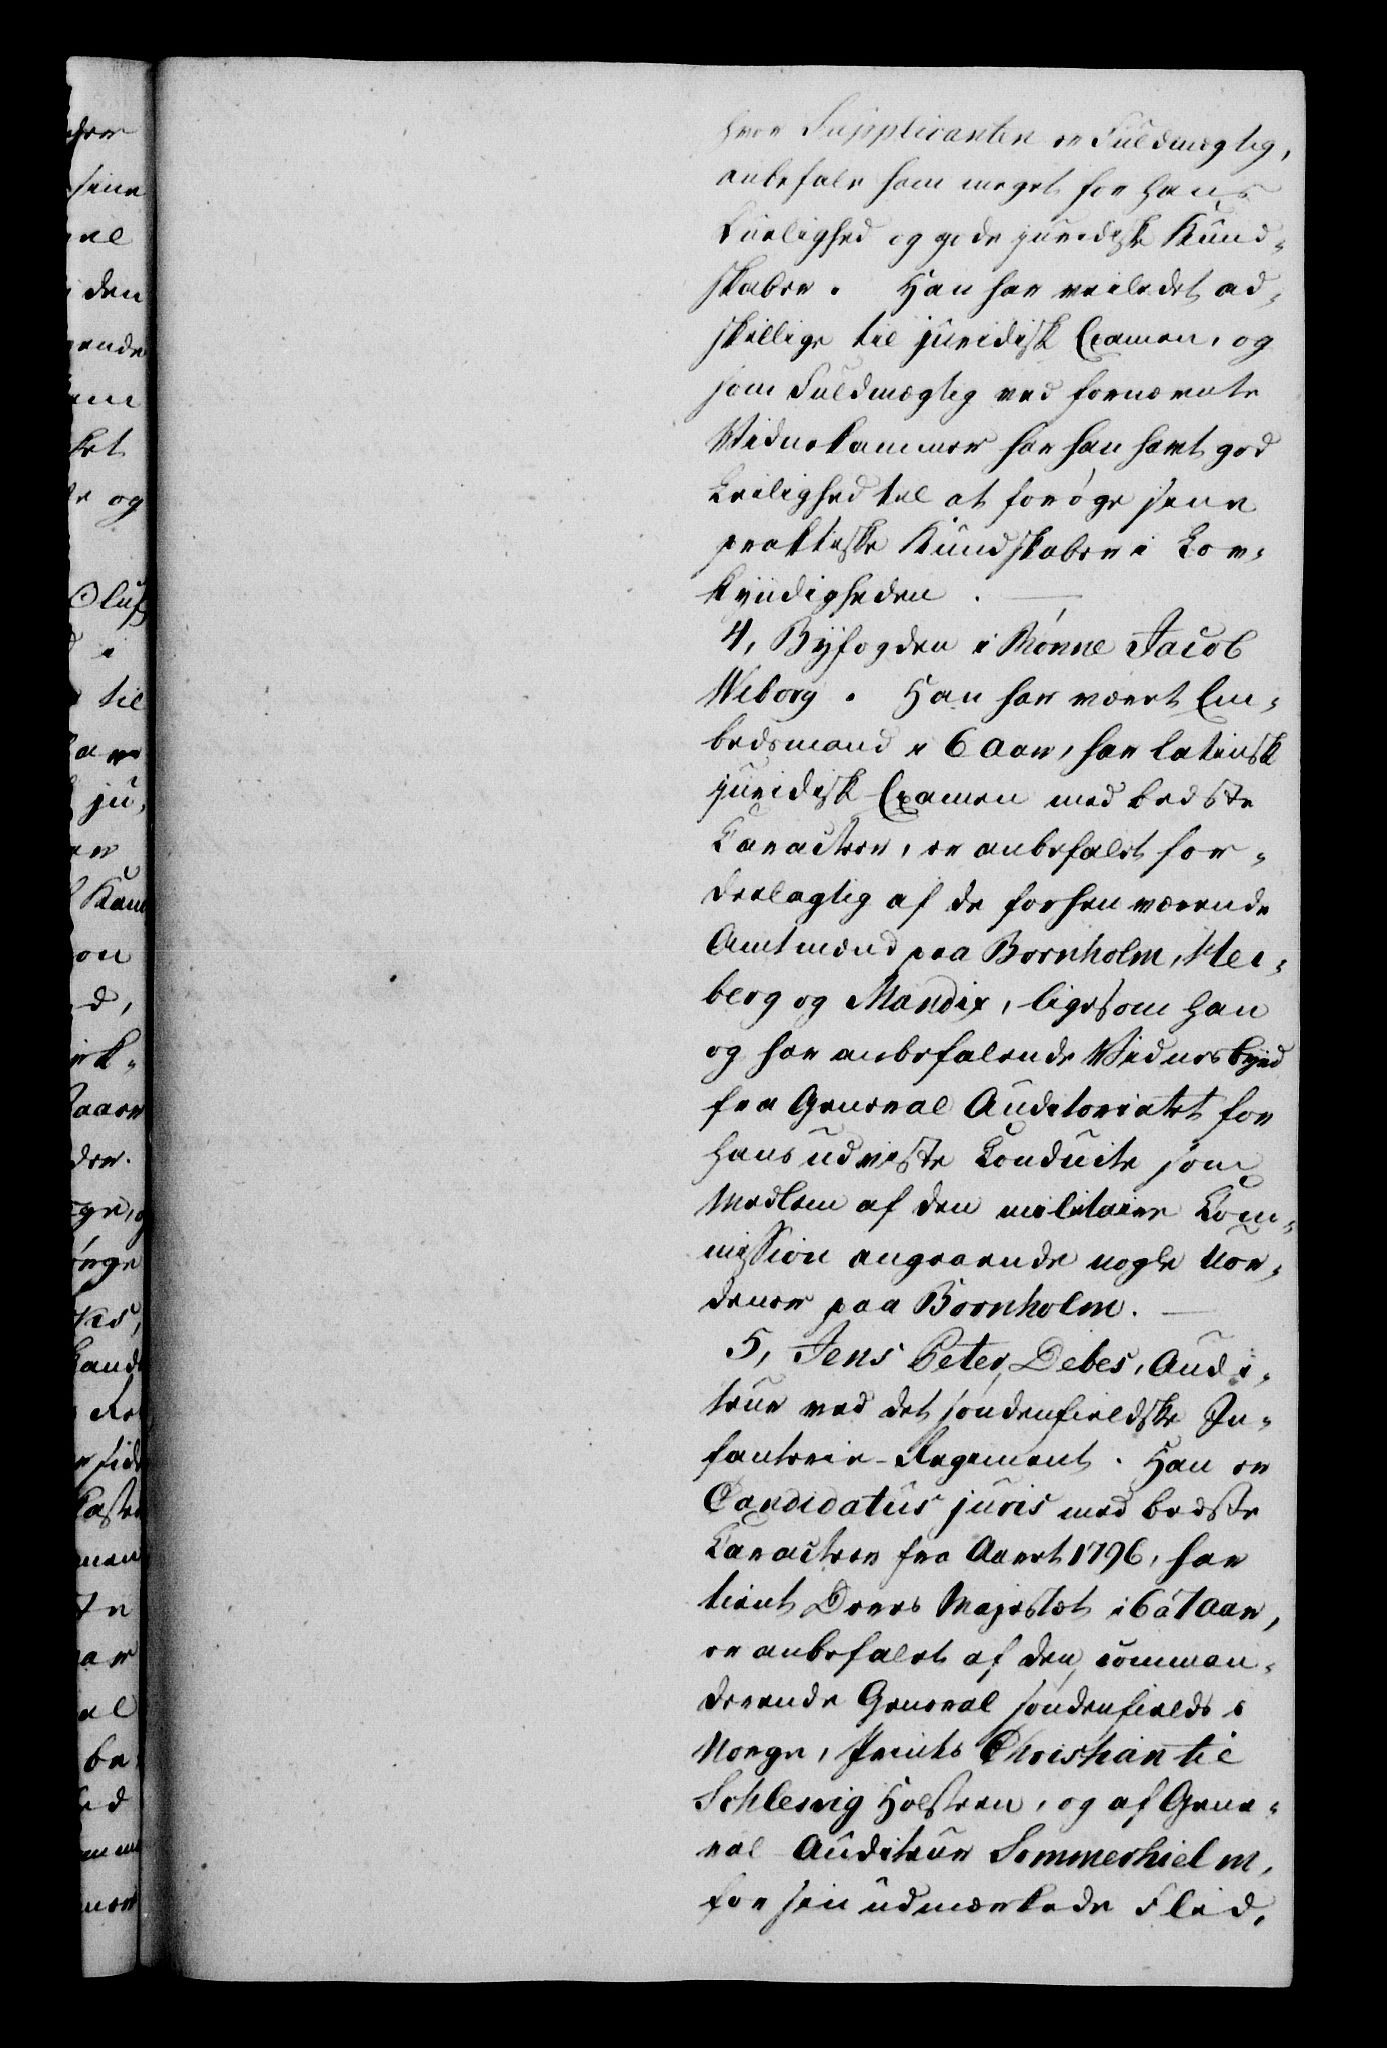 hvor Supplicanten er Fuldmægtig,
anbefale ham meget for Hans
Duelighed og gode juridiske Kund-
skaber. Han har veiledet ad-
skillige til juridisk Examen, og
som Fuldmægtig ved fornævnte
Vidnekammer har han havt god
Leilighed til at forøge sine
praktiske Kundskaber i Lov-
kyndigheden.
4, Byfogden i Rønne Jacob
Wiborg. Han har været Em-
bedsmand i 6 Aar, har latinsk
juridisk Examen med bedste
Caracteer, er anbefalet for-
deelagtig af de forhen værende
Amtmænd paa Bornholm, Hei-
berg og Mandix, ligesom Han
og har anbefalende Vidnesbyrd
fra General Auditoriatet for
Hans udviste Conduite som
Medlem af den militaire Com-
mission angaaende nogle Uor-
dener paa Bornholm.
5, Jens Peter Debes, Audi-
teur ved det søndenfieldske In-
fanterie-Regiment. Han er
Candidatus juris med bedste
Caracteer fra Aaret 1796, har
tient Deres Majestæt i 6 à 7 Aar,
er anbefalet af den comman-
derende General søndenfields i
Norge, Prints Christian til
Schleswig Holsteen, og af Gene-
ral Auditeur Sommerhielm,
for sin udmærkede Flid,